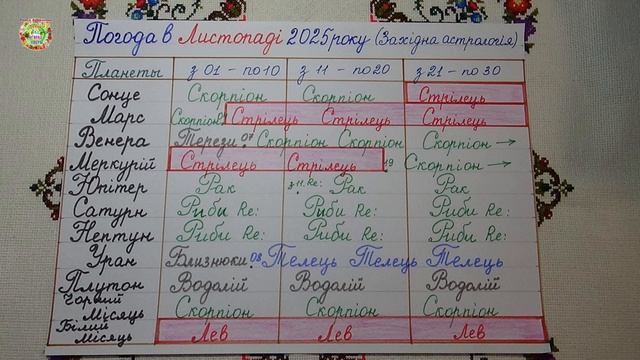 Погода в Листопаді 2025 року (Західна астрологія)
Планеты з 01 – по 10 з 11 – по 20 з 21 – по 30
Сонце Скорпіон Скорпіон Стрілець
Марс Скорпіон Стрілець Стрілець Стрілець
Венера Терези 07 Скорпіон Скорпіон Скорпіон →
Меркурій Стрілець Стрілець 19 Скорпіон →
Юпітер Рак з 11. Re: Рак Рак
Сатурн Риби Re: Риби Re: Риби Re:
Нептун Риби Re: Риби Re: Риби Re:
Уран Близнюки. 08 Телець Телець Телець
Плутон Водолій Водолій Водолій
Чорний Місяць Скорпіон Скорпіон Скорпіон
Білий Місяць Лев Лев Лев